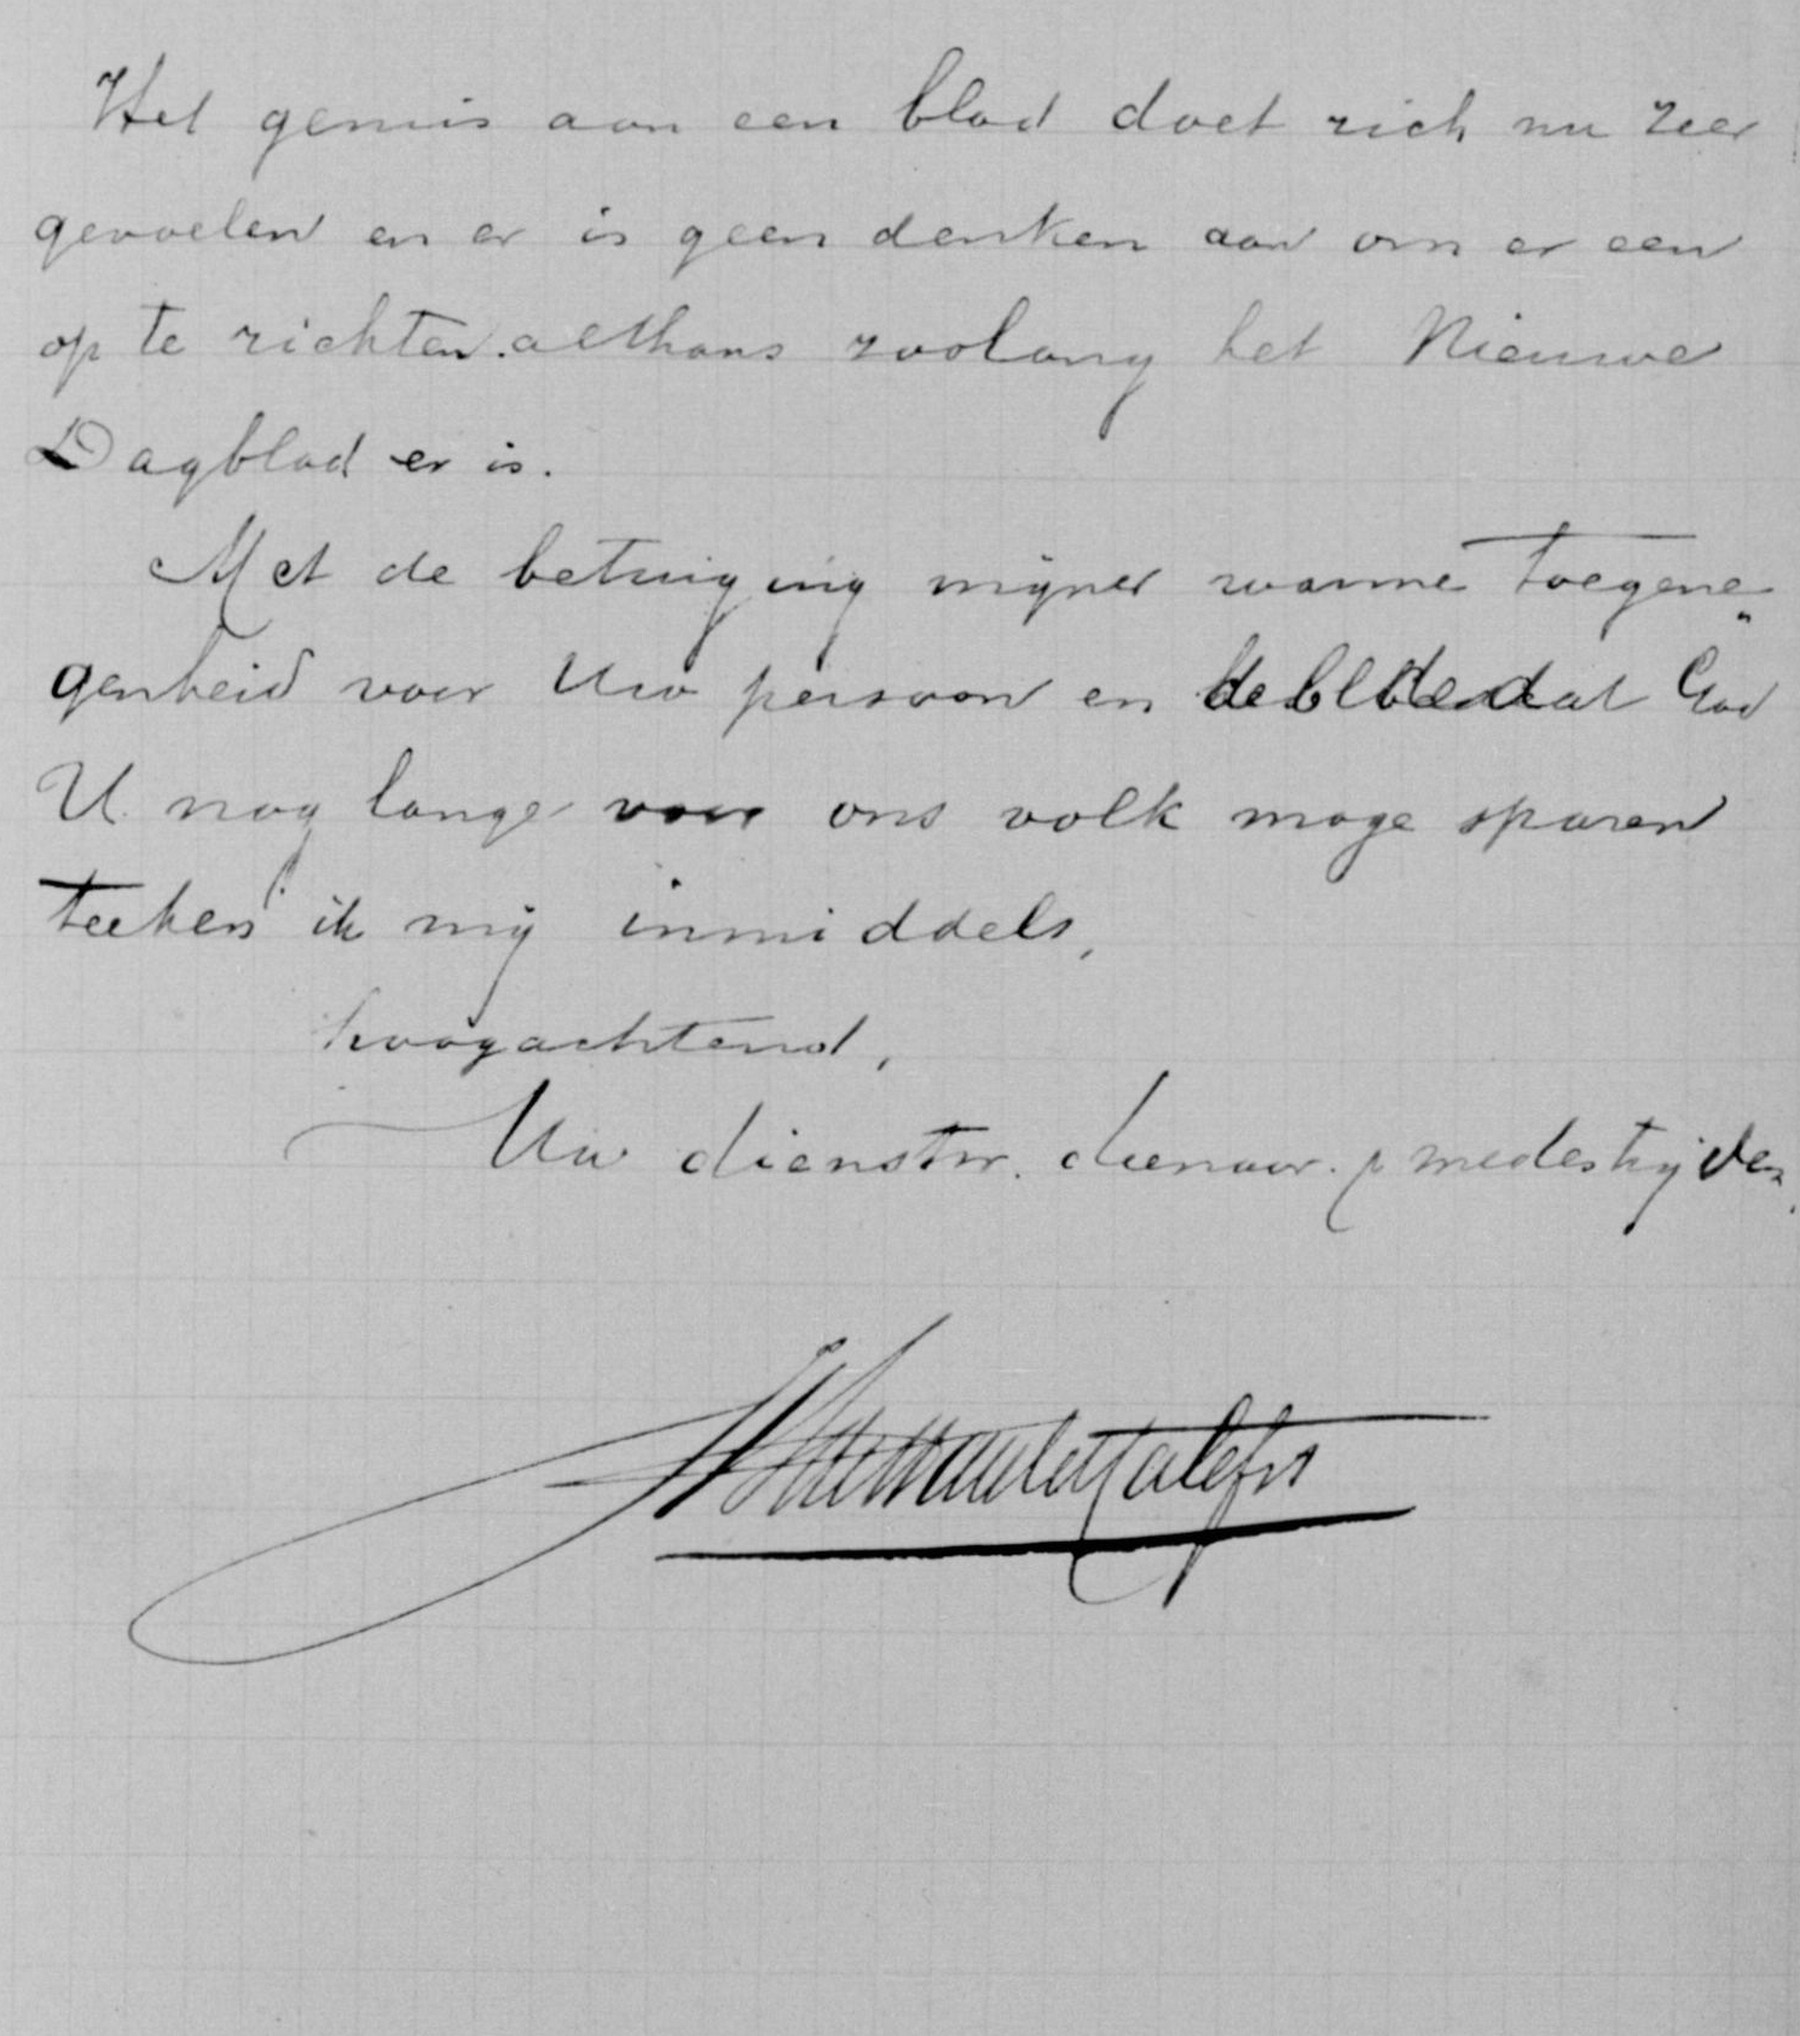 Het gemis aan een blad doet zich nu zeer
gevoelen en er is geen denken aan om er een
op te richten. althans zoolang het Nieuwe
Dagblad er is.
Met de betuiging mijner warme toegene„
genheid voor Uw persoon en de bede dat God
U nog lange voor ons volk moge sparen
teeken ik mij inmiddels,
hoogachtend,
Uw dienstw. dienaar. & medestrijder,